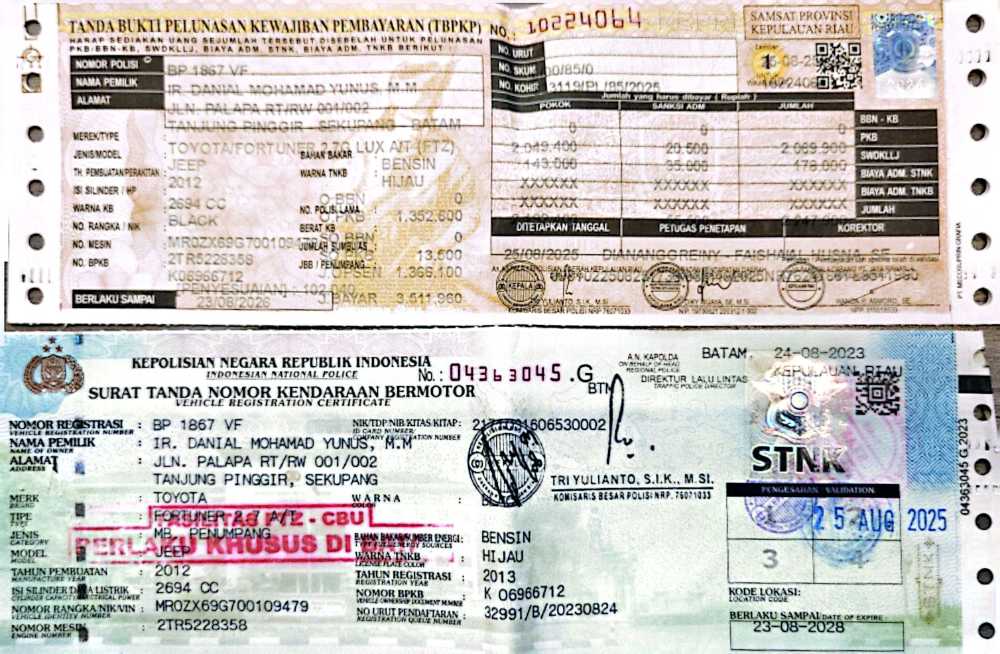 TANDA BUKTI PELUNASAN KEWAJIBAN PEMBAYARAN (TBPKP)
NO.: 10224064
SAMSAT PROVINSI
KEPULAUAN RIAU
HARAP SEDIAKAN UANG SEJUMLAH TERSEBUT DISEBELAH UNTUK PELUNASAN
PKB/BBN-KB, SWDKLLJ, BIAYA ADM. STNK, BIAYA ADM. TNKB BERIKUT :
NOMOR POLISI BP 1867 VF
NAMA PEMILIK IR. DANIAL MOHAMAD YUNUS, M.M
ALAMAT JLN. PALAPA RT/RW 001/002
TANJUNG PINGGIR - SEKUPANG - BATAM
NO. URUT
NO. SKUM 00/85/0
NO. KOHIR
Jumlah yang harus dibayar ( Rupiah )
POKOK SANKSI ADM JUMLAH
0 0 0 BBN - KB
2,049,400 20,500 2,069,900 PKB
143,000 35,000 178,000 SWDKLLJ
XXXXXX XXXXXX XXXXXX BIAYA ADM. STNK
XXXXXX XXXXXX XXXXXX BIAYA ADM. TNKB
JUMLAH
MEREK/TYPE TOYOTA/FORTUNER 2.7G LUX A/T (FTZ)
JENIS/MODEL JEEP BAHAN BAKAR BENSIN
TH. PEMBUATAN/PERAKITAN 2012 WARNA TNKB HIJAU
ISI SILINDER / HP 2694 CC NO. POLISI LAMA
WARNA KB BLACK BERAT KB
NO. RANGKA / NIK MR0ZX69G700109479 JUMLAH SUMBU/AS
NO. MESIN 2TR5228358 JBB / PENUMPANG
NO. BPKB K06966712
0
1,352,600
0
13,500
1,366,100
DITETAPKAN TANGGAL PETUGAS PENETAPAN KOREKTOR
25/08/2025
BERLAKU SAMPAI 23/08/2026 BAYAR 3,611,960
KEPOLISIAN NEGARA REPUBLIK INDONESIA
INDONESIAN NATIONAL POLICE
No.: 04363045 .G
SURAT TANDA NOMOR KENDARAAN BERMOTOR
VEHICLE REGISTRATION CERTIFICATE
A.N. KAPOLDA
ON BEHALF OF HEAD
REGIONAL POLICE
BATAM, 24-08-2023
KEPULAUAN RIAU
DIREKTUR LALU LINTAS
TRAFFIC POLICE DIRECTOR
NOMOR REGISTRASI : BP 1867 VF
VEHICLE REGISTRATION NUMBER
NIK/TDP/NIB/KITAS/KITAP :
ID CARD NUMBER/
COMPANY REGISTRATION NUMBER
NAMA PEMILIK : IR. DANIAL MOHAMAD YUNUS, M.M
NAME OF OWNER
ALAMAT : JLN. PALAPA RT/RW 001/002
ADDRESS
TANJUNG PINGGIR, SEKUPANG
TRI YULIANTO, S.I.K., M.SI.
KOMISARIS BESAR POLISI NRP. 76071033
STNK
PENGESAHAN VALIDATION
25 AUG 2025
3 4
MERK : TOYOTA
BRAND
WARNA
COLOR
TIPE : FORTUNER 2.7 A/T
TYPE
FASILITAS FTZ - CBU
BERLAKU KHUSUS DI
JENIS : MB. PENUMPANG
CATEGORY
BAHAN BAKAR/SUMBER ENERGI : BENSIN
TYPE FUEL/ENERGY SOURCES
MODEL : JEEP
MODEL
WARNA TNKB : HIJAU
LICENSE PLATE COLOR
TAHUN PEMBUATAN : 2012
MANUFACTURE YEAR
TAHUN REGISTRASI : 2013
REGISTRATION YEAR
ISI SILINDER DAYA LISTRIK : 2694 CC
CYLINDER CAPACITY/ELECTRICAL POWER
NOMOR BPKB : K 06966712
VEHICLE OWNERSHIP DOCUMENT NUMBER
NOMOR RANGKA/NIK/VIN : MR0ZX69G700109479
VEHICLE IDENTITY NUMBER
NO URUT PENDAFTARAN : 32991/B/20230824
REGISTRATION QUEUE NUMBER
NOMOR MESIN : 2TR5228358
ENGINE NUMBER
KODE LOKASI:
LOCATION CODE
BERLAKU SAMPAI/DATE OF EXPIRE :
23-08-2028
04363045 G 2023